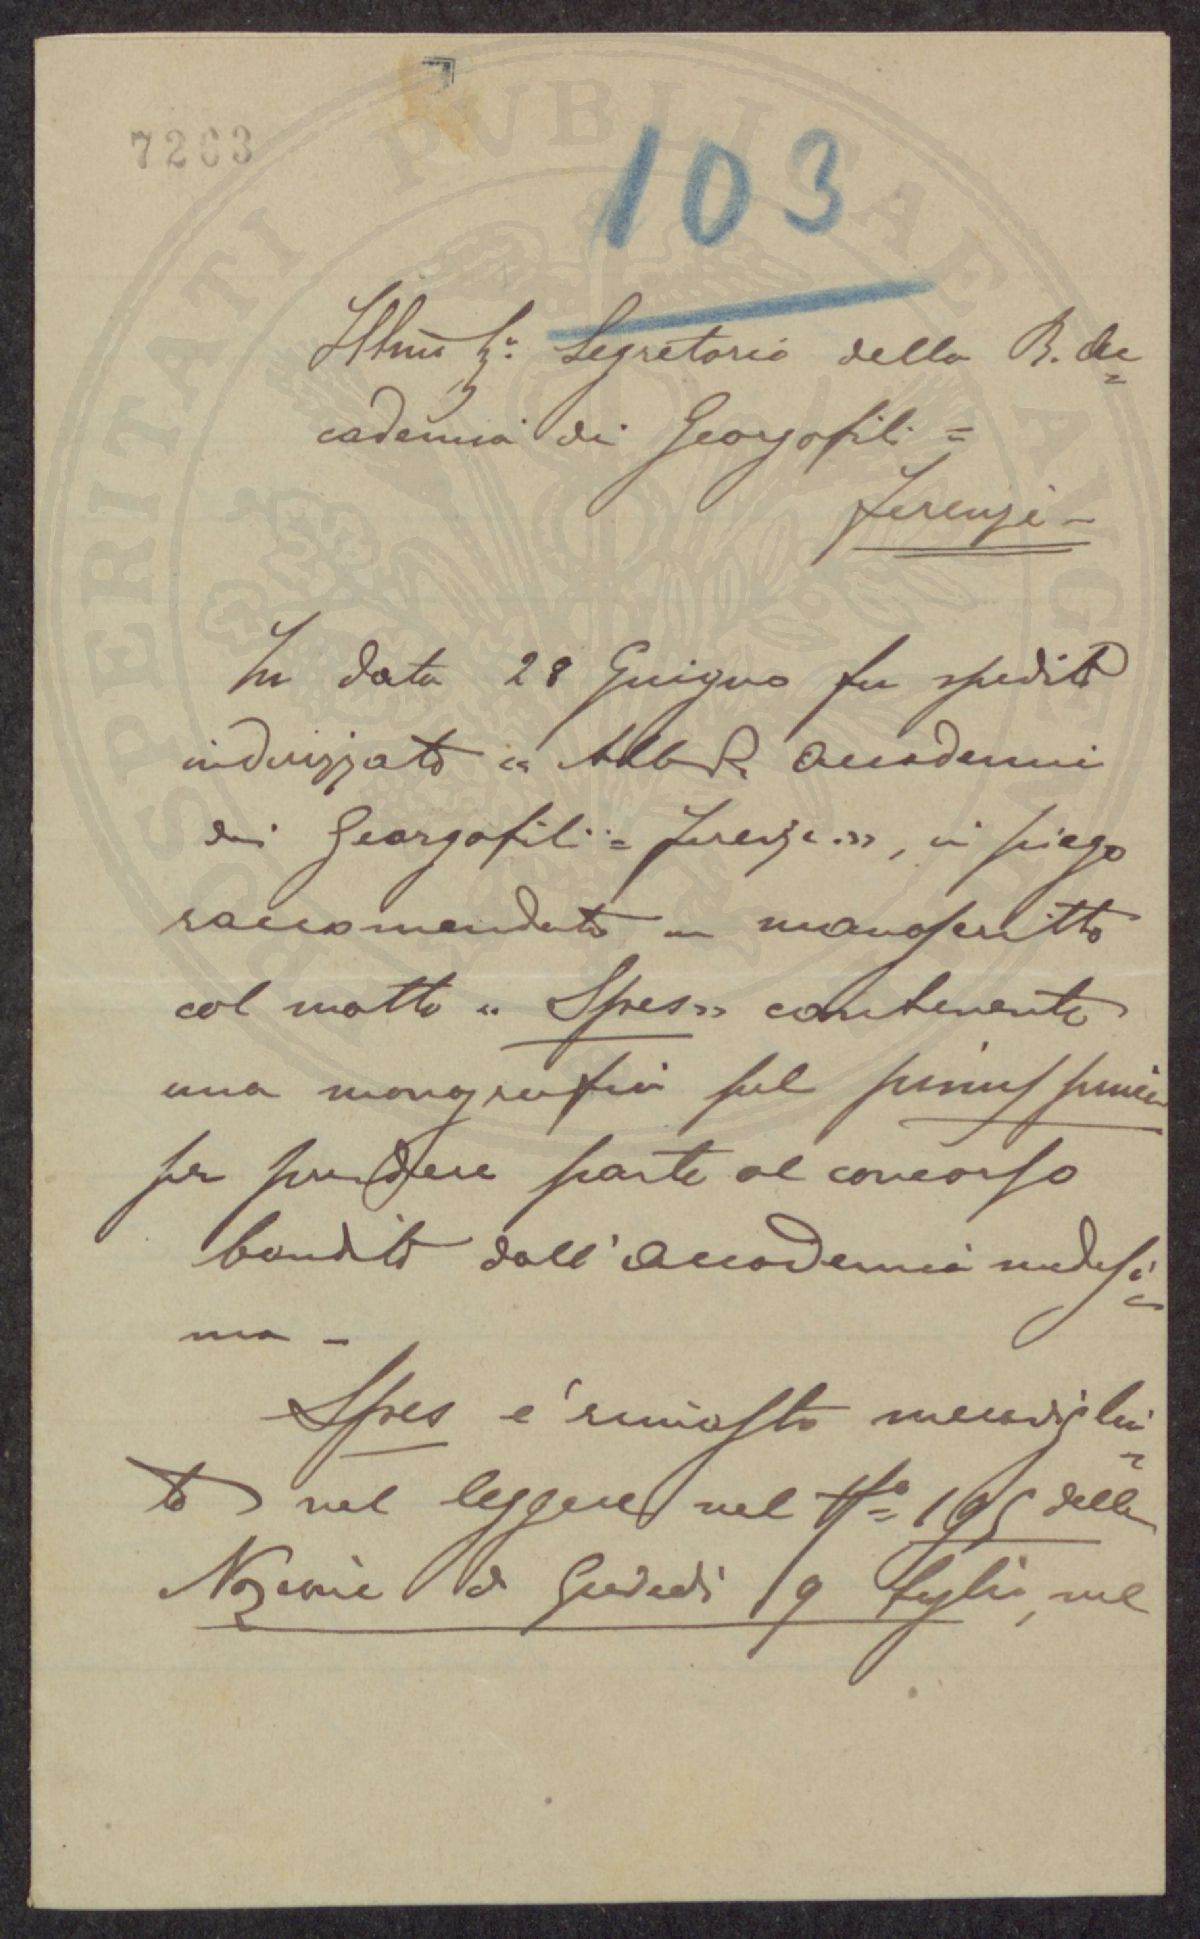 7263
103
Illmo Sr. Segretario della R. Ac=
cademia dei Georgofili =
Firenze -
In data 28 Giugno fu spedito
indirizzato " Alla R. Accademia
dei Georgofili = Firenze ", in piego
raccomandato un manoscritto
col motto " Spes " contenente
una monografia sul pinus pinea
per prendere parte al concorso
bandito dall'Accademia medesi=
ma -
Spes è rimasto maraviglia=
to nel leggere nel No 195 della
Nazione di Giovedì 19 luglio, nel
PROSPERITATI PVBLICAE AVGENDAE